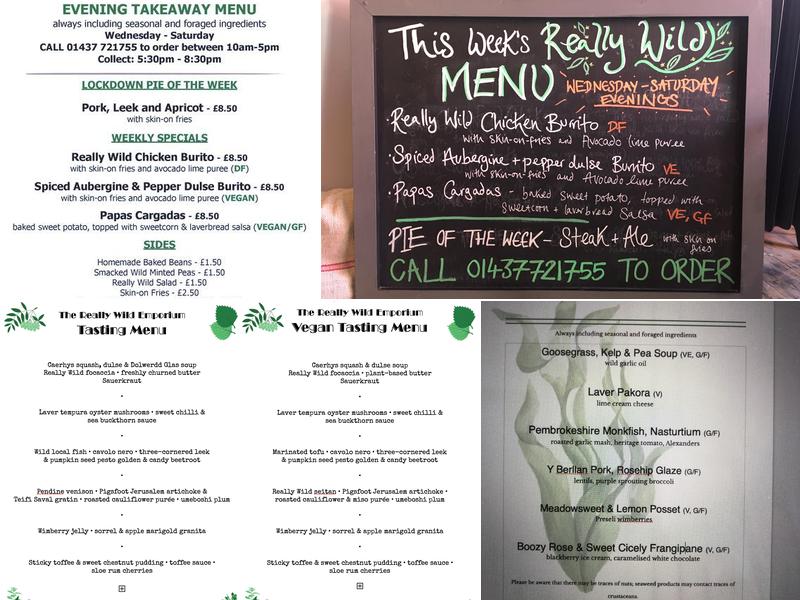 EVENING TAKEAWAY MENU
always including seasonal and foraged ingredients
Wednesday - Saturday
CALL 01437 721755 to order between 10am-5pm
Collect: 5:30pm - 8:30pm
LOCKDOWN PIE OF THE WEEK
Pork, Leek and Apricot - £8.50
with skin-on fries
WEEKLY SPECIALS
Really Wild Chicken Burito - £8.50
with skin-on fries and avocado lime puree (DF)
Spiced Aubergine & Pepper Dulse Burito - £8.50
with skin-on fries and avocado lime puree (VEGAN)
Papas Cargadas - £8.50
baked sweet potato, topped with sweetcorn & laverbread salsa (VEGAN/GF)
SIDES
Homemade Baked Beans - £1.50
Smacked Wild Minted Peas - £1.50
Really Wild Salad - £1.50
Skin-on Fries - £2.50
This Week's Really Wild
MENU WEDNESDAY - SATURDAY
EVENINGS
· Really Wild Chicken Burrito DF
with skin-on-fries and Avocado lime puree
· Spiced Aubergine + pepper dulse Burrito VE
with skin-on-fries and Avocado lime puree
· Papas Cargadas - baked sweet potato, topped with
Sweetcorn + laverbread Salsa VE, GF
PIE OF THE WEEK - Steak + Ale with skin on
fries
CALL 01437721755 TO ORDER
The Really Wild Emporium
Tasting Menu
Caerhys squash, dulse & Dolwerdd Glas soup
Really Wild focaccia • freshly churned butter
Sauerkraut
•
Laver tempura oyster mushrooms • sweet chilli &
sea buckthorn sauce
•
Wild local fish • cavolo nero • three-cornered leek
& pumpkin seed pesto golden & candy beetroot
•
Pendine venison • Pigsfoot Jerusalem artichoke &
Teifi Saval gratin • roasted cauliflower purée • umeboshi plum
•
Wimberry jelly • sorrel & apple marigold granita
•
Sticky toffee & sweet chestnut pudding • toffee sauce •
sloe rum cherries
The Really Wild Emporium
Vegan Tasting Menu
Caerhys squash & dulse soup
Really Wild focaccia • plant-based butter
Sauerkraut
•
Laver tempura oyster mushrooms • sweet chilli &
sea buckthorn sauce
•
Marinated tofu • cavolo nero • three-cornered leek
& pumpkin seed pesto golden & candy beetroot
•
Really Wild seitan • Pigsfoot Jerusalem artichoke •
roasted cauliflower & miso purée • umeboshi plum
•
Wimberry jelly • sorrel & apple marigold granita
•
Sticky toffee & sweet chestnut pudding • toffee sauce •
sloe rum cherries
Always including seasonal and foraged ingredients
Goosegrass, Kelp & Pea Soup (VE, G/F)
wild garlic oil
Laver Pakora (V)
lime cream cheese
Pembrokeshire Monkfish, Nasturtium (G/F)
roasted garlic mash, heritage tomato, Alexanders
Y Berllan Pork, Rosehip Glaze (G/F)
lentils, purple sprouting broccoli
Meadowsweet & Lemon Posset (V, G/F)
Preseli wimberries
Boozy Rose & Sweet Cicely Frangipane (V, G/F)
blackberry ice cream, caramelised white chocolate
Please be aware that there may be traces of nuts; seaweed products may contain traces of
crustaceans.